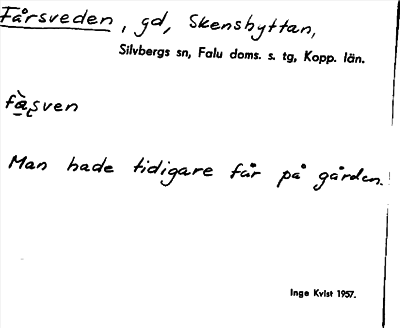 Fårsveden, gd, Skenshyttan,
Silvbergs sn, Falu doms. s. tg, Kopp. län.
få̱sven
Man hade tidigare får på gården.
Inge Kvist 1957.